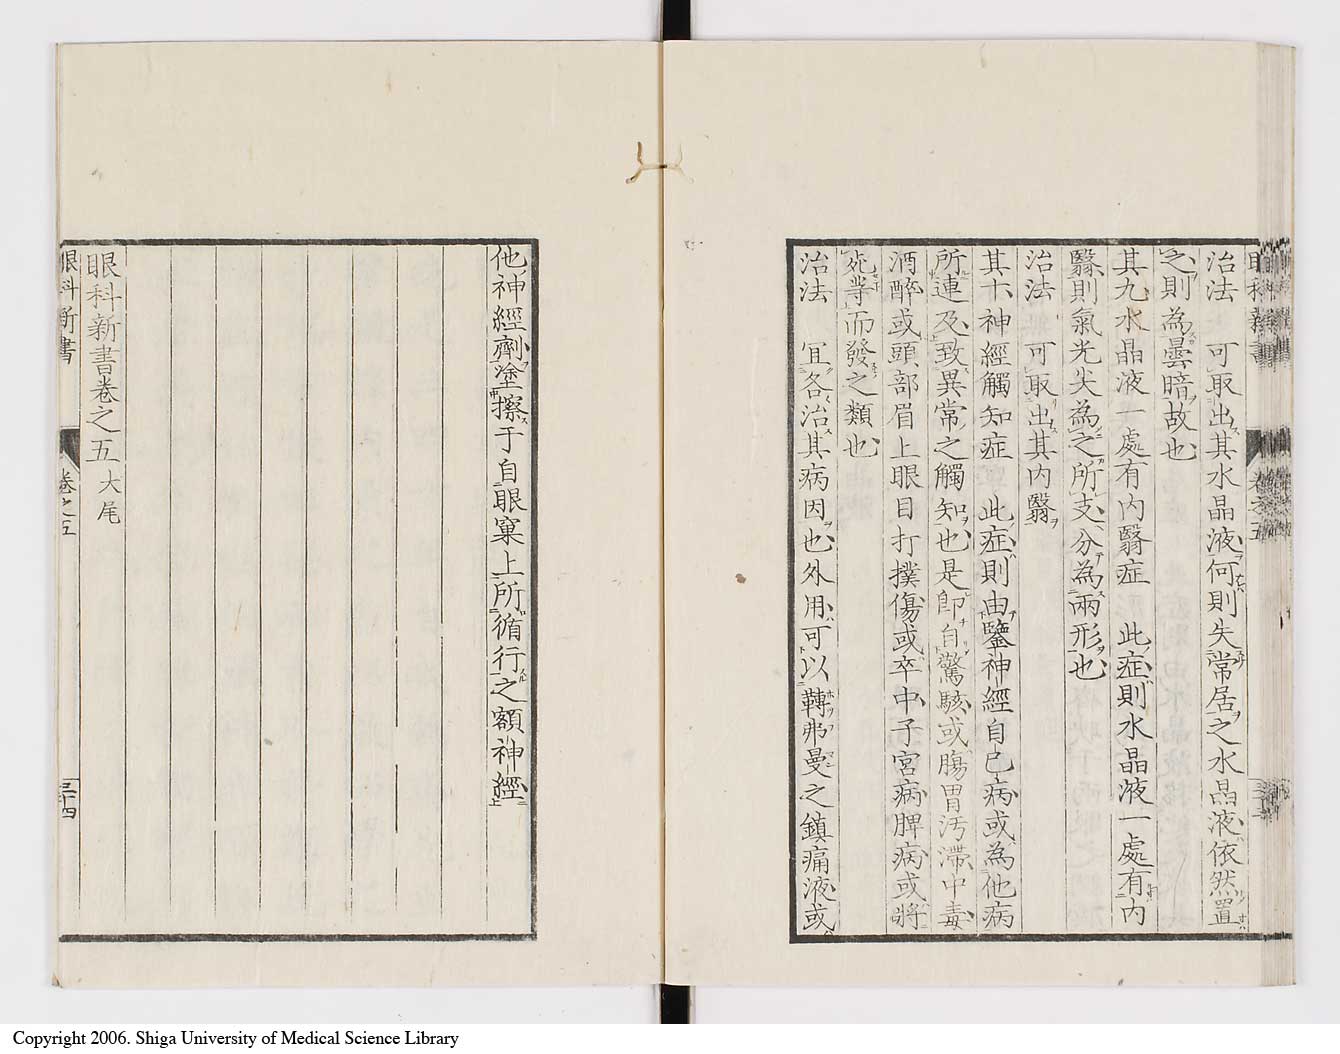 治法 可取出其水晶液何則失常居之水晶液依然置
之則為曇暗故也
其九水晶液一處有内翳症 此症則水晶液一處有内
翳則氣光尖為之所支分為兩形也
治法 可取出其内翳
其十神經觸知症 此症則由鑒神經自己病或為他病
所連及致異常之觸知也是即自驚駭或腸胃汚滯中毒
酒醉或頭部眉上眼目打撲傷或卒中子宮病脾病或將
死等而發之類也
治法 冝各治其病因也外用可以轉弗曼之鎮痛液或
他神經劑塗擦于自眼窠上所循行之額神經
眼科新書卷之五大尾
眼科新書 卷之五 三十四
Copyright 2006. Shiga University of Medical Science Library